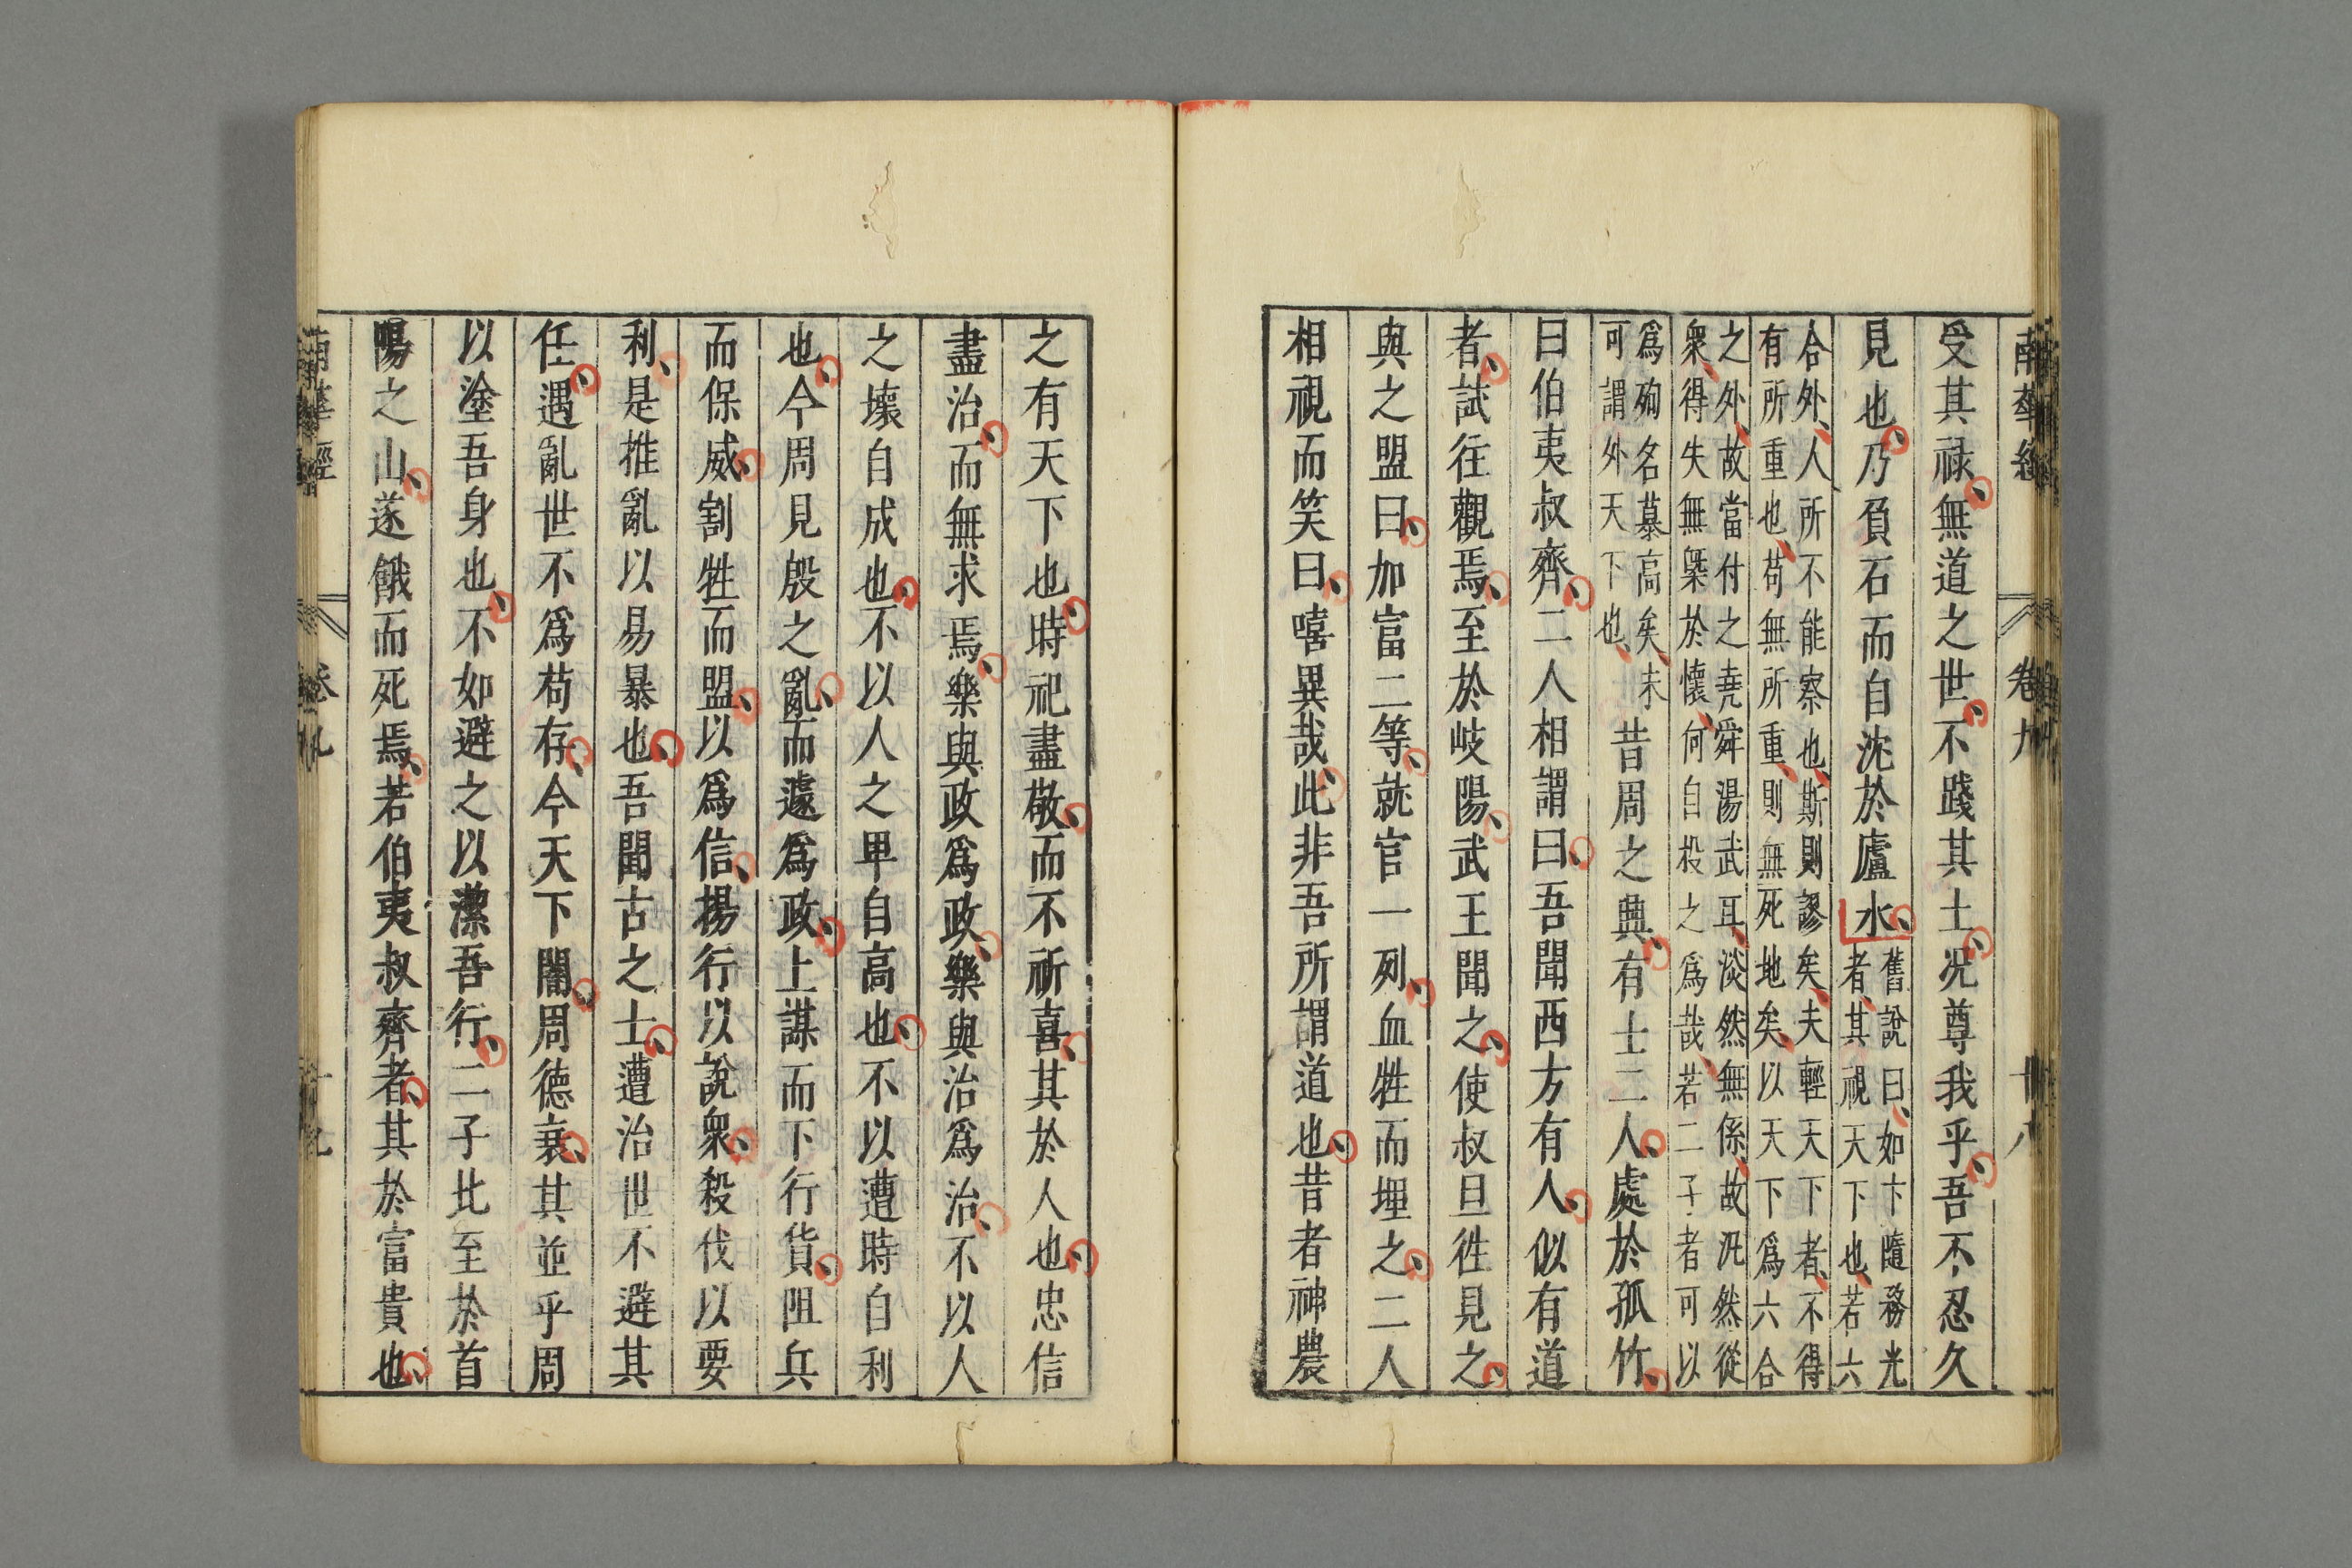 南華經 卷九
受其祿無道之世不踐其土况尊我乎吾不忍久
見也乃負石而自沈於廬水
舊說曰如卞隨務光
者其視天下也若六
合外人所不能察也斯則謬矣夫輕天下者不得
有所重也苟無所重則無死地矣以天下爲六合
之外故當付之堯舜湯武耳淡然無係故汎然從
衆得失無槩於懷何自投之爲哉若二子者可以
爲殉名慕高矣未
可謂外天下也
昔周之興有士二人處於孤竹
曰伯夷叔齊二人相謂曰吾聞西方有人似有道
者試往觀焉至於岐陽武王聞之使叔旦徃見之
與之盟曰加富二等就官一列血牲而埋之二人
相視而笑曰嘻異哉此非吾所謂道也昔者神農
之有天下也時祀盡敬而不祈喜其於人也忠信
盡治而無求焉樂與政爲政樂與治爲治不以人
之壞自成也不以人之卑自高也不以遭時自利
也今周見殷之亂而遽爲政上謀而下行貨阻兵
而保威割牲而盟以爲信揚行以說衆殺伐以要
利是推亂以易暴也吾聞古之士遭治世不避其
任遇亂世不爲苟存今天下闇周德衰其並乎周
以塗吾身也不如避之以潔吾行二子北至於首
陽之山遂餓而死焉若伯夷叔齊者其於富貴也
南華經 卷九